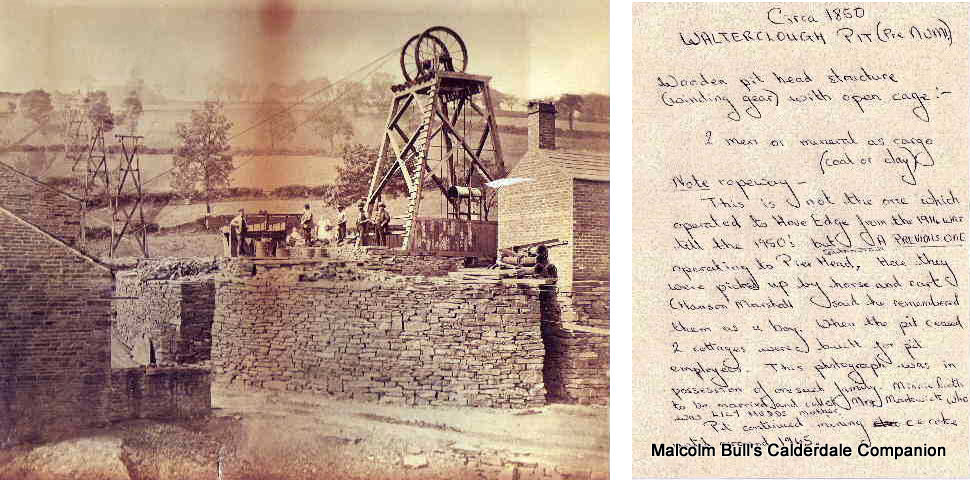 Circa 1850
WALTERCLOUGH PIT (Pre NUM)
Wooden pit head structure
(winding gear) with open cage:-
2 men or mineral as cargo
(coal or clay)
Note ropeway -
This is not the one which
operated to Hove Edge from the 1914 war
till the 1950s but A PREVIOUS ONE
operating to Pier Head, Here they
were picked up by horse and cart
(Hanson Marshall said he remembered
them as a boy. When the pit ceased
2 cottages were built for pit
employees. This photograph was in
possession of one such family. Minnie
to be married and called Mrs
was LILY mother
Pit continued mining
until 1945.
Malcolm Bull's Calderdale Companion